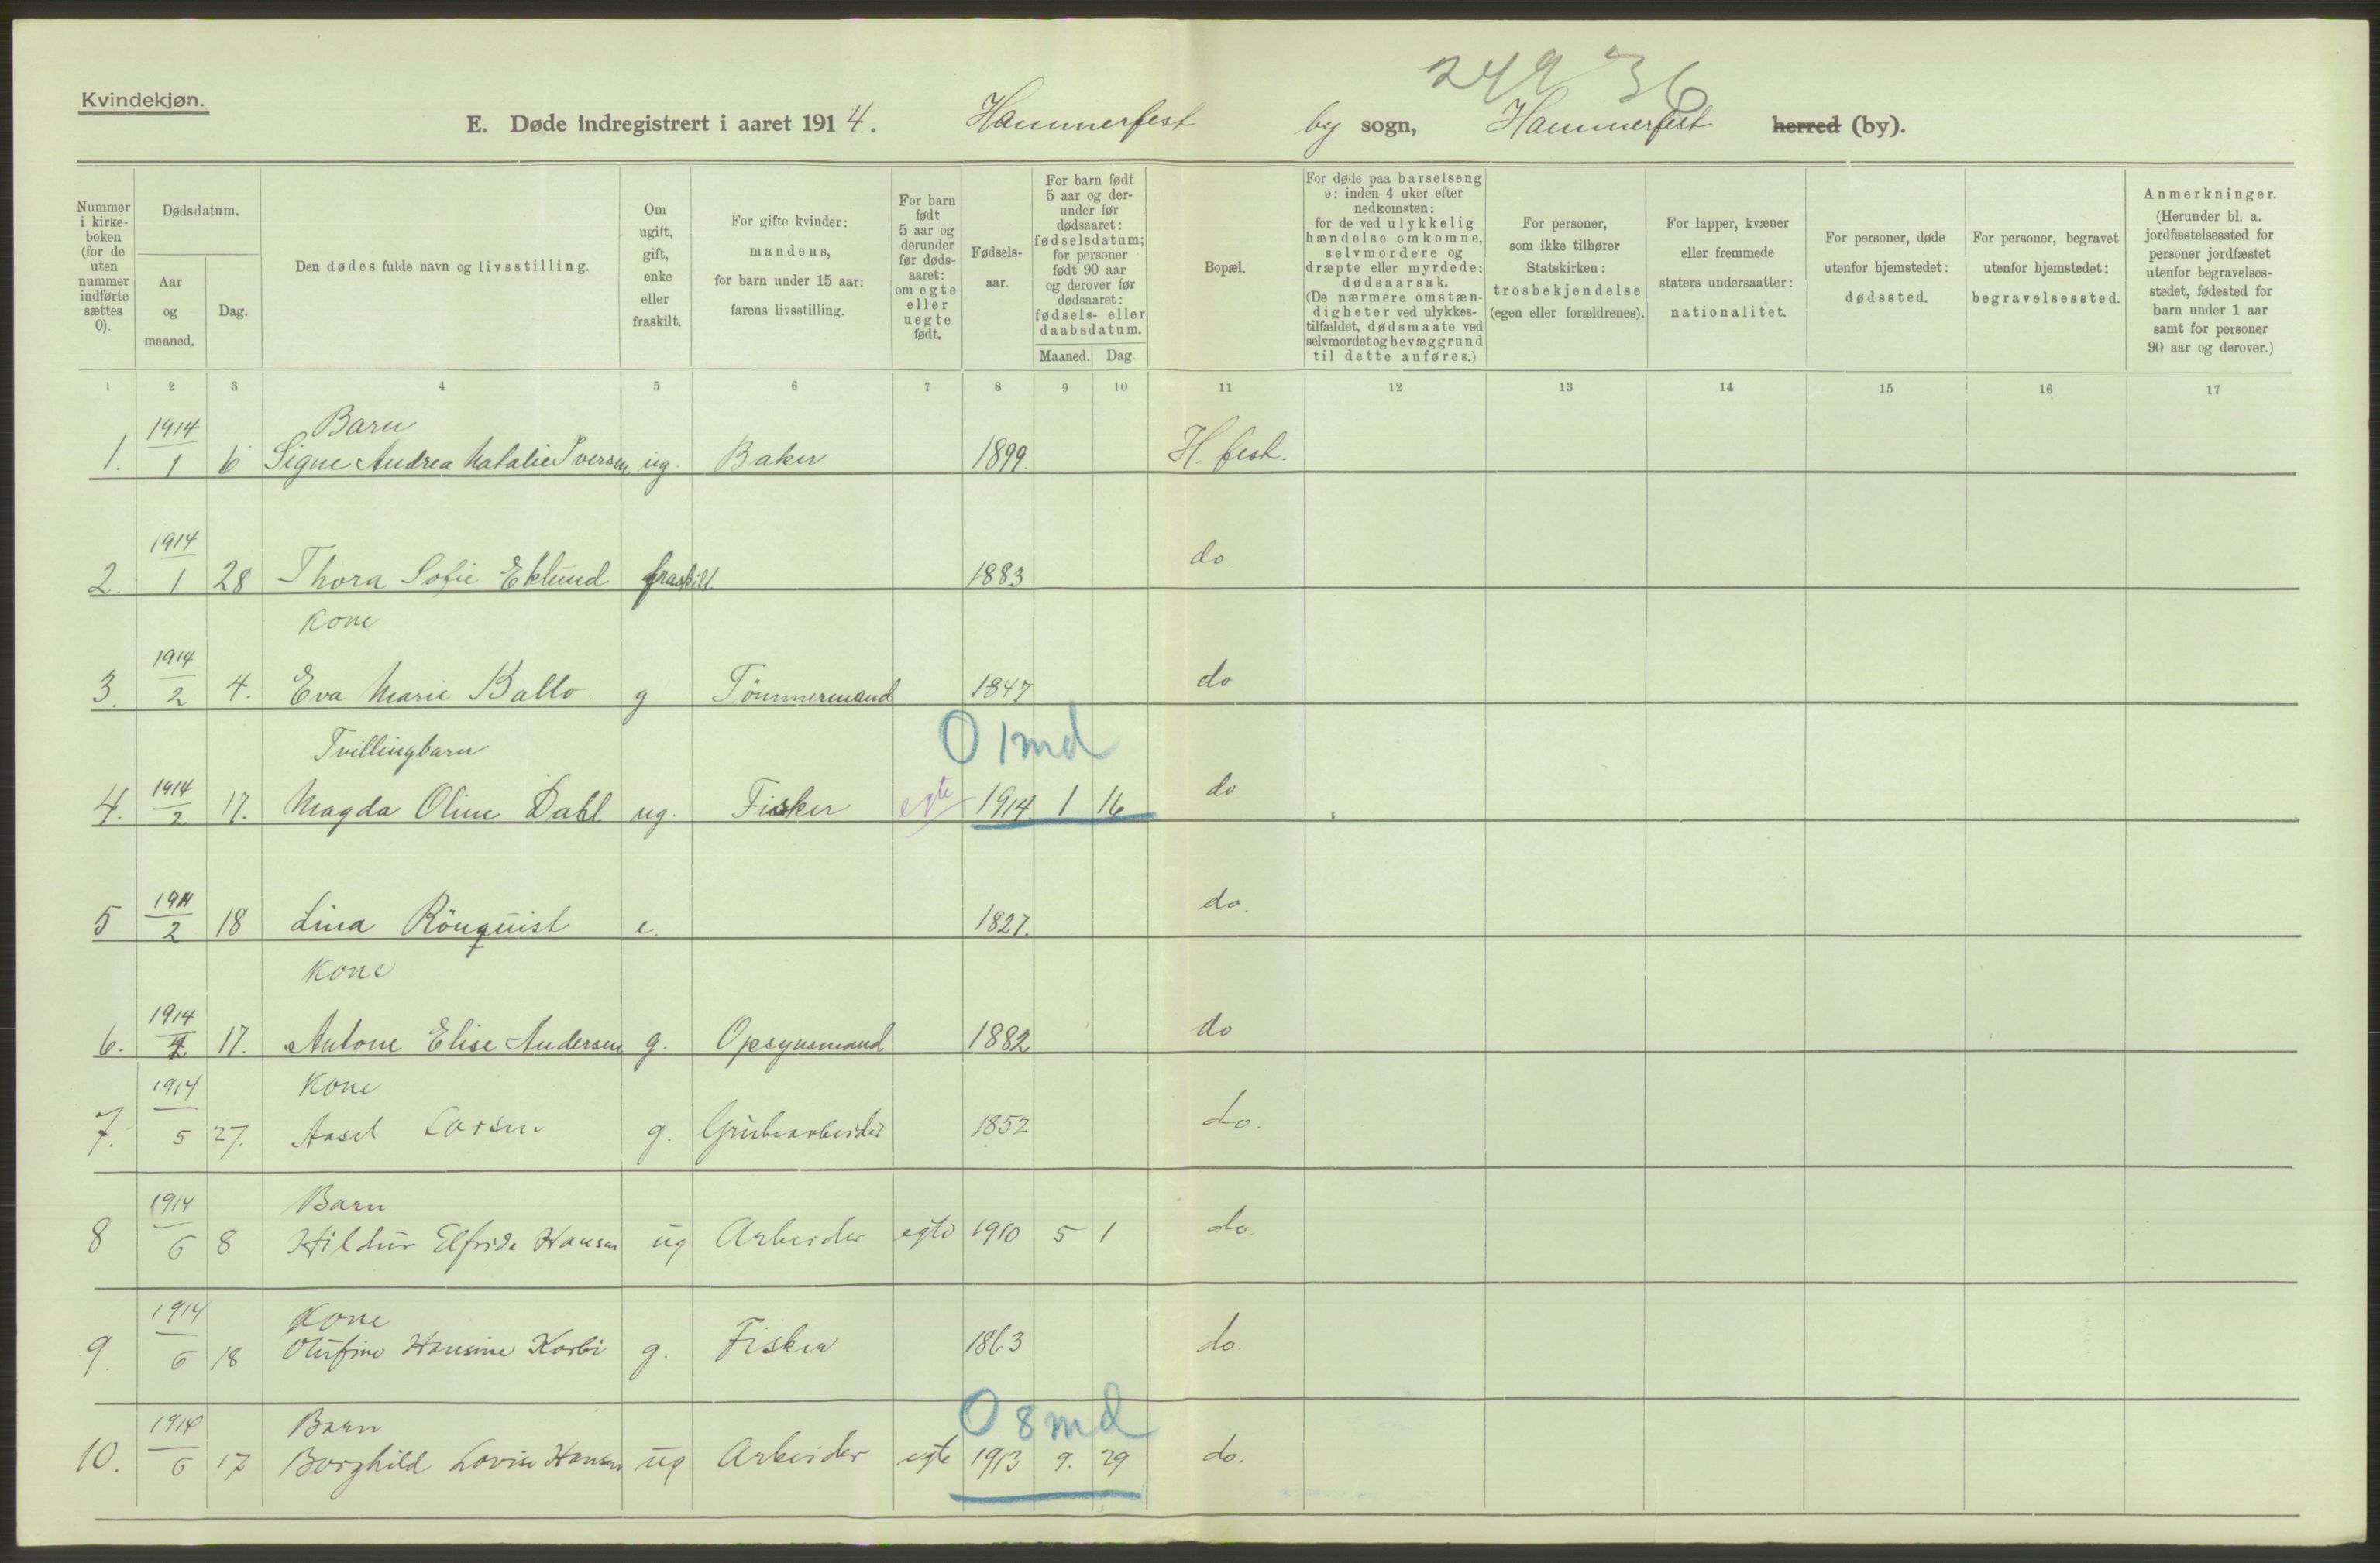 249 36
Kvindekjøn.
E. Døde indregistrert i aaret 1914. Hammerfest by sogn, Hammerfest herred (by).
Nummer i kirke-boken (for de uten nummer indførte sættes 0).
Dødsdatum.
Aar og maaned.
Dag.
Den dødes fulde navn og livsstilling.
Om ugift, gift, enke eller fraskilt.
For gifte kvinder: mandens, for barn under 15 aar: farens livsstilling.
For barn født 5 aar og derunder før døds-aaret: om egte eller uegte født.
Fødsels-aar.
For barn født 5 aar og der-under før dødsaaret: fødselsdatum; for personer født 90 aar og derover før dødsaaret: fødsels- eller daabsdatum.
Maaned. Dag.
Bopæl.
For døde paa barselseng ɔ: inden 4 uker efter nedkomsten: for de ved ulykkelig hændelse omkomne, selvmordere og dræpte eller myrdede: dødsaarsak. (De nærmere omstæn-digheter ved ulykkes-tilfældet, dødsmaate ved selvmordet og bevæggrund til dette anføres.)
For personer, som ikke tilhører Statskirken: trosbekjendelse (egen eller forældrenes).
For lapper, kvæner eller fremmede staters undersaatter: nationalitet.
For personer, døde utenfor hjemstedet: dødssted.
For personer, begravet utenfor hjemstedet: begravelsessted.
Anmerkninger. (Herunder bl. a. jordfæstelsessted for personer jordfæstet utenfor begravelses-stedet, fødested for barn under 1 aar samt for personer 90 aar og derover.)
1 2 3 4 5 6 7 8 9 10 11 12 13 14 15 16 17
1914 Barn
1. 1 6 Signe Andrea Natalie Iversen ug. Baker 1899. H. fest.
1914
2. 1 28 Thora Sofie Eklund fraskilt 1883 do.
Kone
1914
3. 2 4. Eva Marie Ballo. g Tömmermand 1847 do
0 1 md
Tvillingbarn
1914
4. 2 17. Magda Oline Dahl ug. Fisker egte 1914 1 16 do
1914
5 2 18 Lina Rönquist e. 1827. do.
Kone
1914
6. 4 17. Antone Elise Andersen g. Opsynsmand 1882 do
1914 Kone
7. 5 27. Aasel Larsen g. Grubearbeider 1852 do.
1914 Barn
8 6 8 Hildur Elfrida Hansen ug Arbeider egte 1910 5 1 do.
1914 Kone
9. 6 18 Olufine Hansine Karbi g. Fisker 1863 do.
0 8 md
1914 Barn
10. 6 17 Borghild Lovise Hansen ug Arbeider egte 1913 9. 29 do.